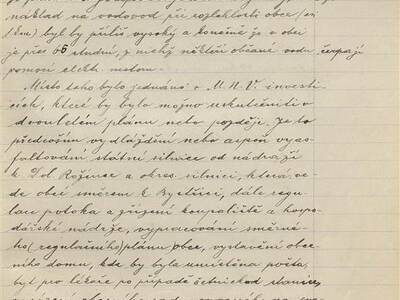 náklad na vodovod při rozlehlosti obce
byl by příliš vysoký a konečně je v obci
je přes 66 studní, z nichž někteří občané vodu čerpají
pomocí elektr. motoru.
Místo toho bylo jednáno v M. N. V. o investi-
cích, které by bylo možno uskutečniti v
dvouletém plánu nebo později. Je to
především vydláždění nebo aspoň vyas-
faltování státní silnice od nádraží
k Dol. Rožínce a okres. silnici, která ve-
de obcí směrem k Bystřici, dále regu-
lace potoka a zřízení koupaliště a hospo-
dářské nádrže, vypracování směrné-
ho (regulačního) plánu obce, vystavění obec-
ního domu, kde by byla umístěna pošta,
byt pro lékaře po případě četnická stanice,